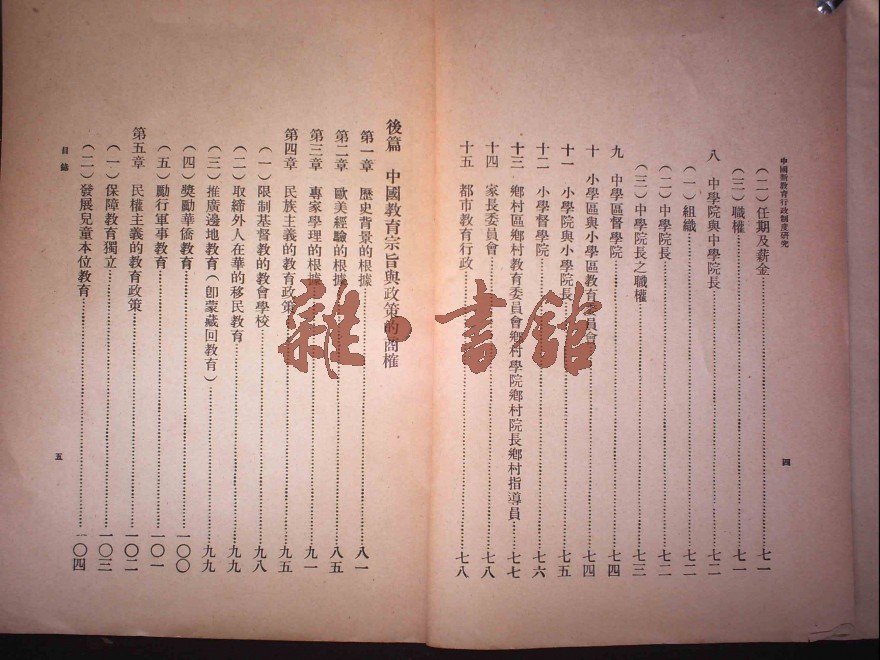 中國新教育行政制度研究
(二)任期及薪金……七一
(三)職權……七一
八 中學院與中學院長……七二
(一)組織……七二
(二)中學院長……七二
(三)中學院長之職權……七三
九 中學區督學院……七四
十 小學區與小學區教育委員會……七四
十一 小學院與小學院長……七五
十二 小學督學院……七六
十三 鄉村區鄉村教育委員會鄉村學院鄉村院長鄉村指導員……七七
十四 家長委員會……七八
十五 都市教育行政……七八
四
後篇 中國教育宗旨與政策的商榷
第一章 歷史背景的根據……八一
第二章 歐美經驗的根據……八五
第三章 專家學理的根據……九一
第四章 民族主義的教育政策……九五
(一)限制基督教的教會學校……九八
(二)取締外人在華的移民教育……九九
(三)推廣邊地教育(卽蒙藏回教育)……九九
(四)獎勵華僑教育……一〇〇
(五)勵行軍事教育……一〇一
第五章 民權主義的教育政策……一〇二
(一)保障教育獨立……一〇三
(二)發展兒童本位教育……一〇四
目錄
五
雜·書館